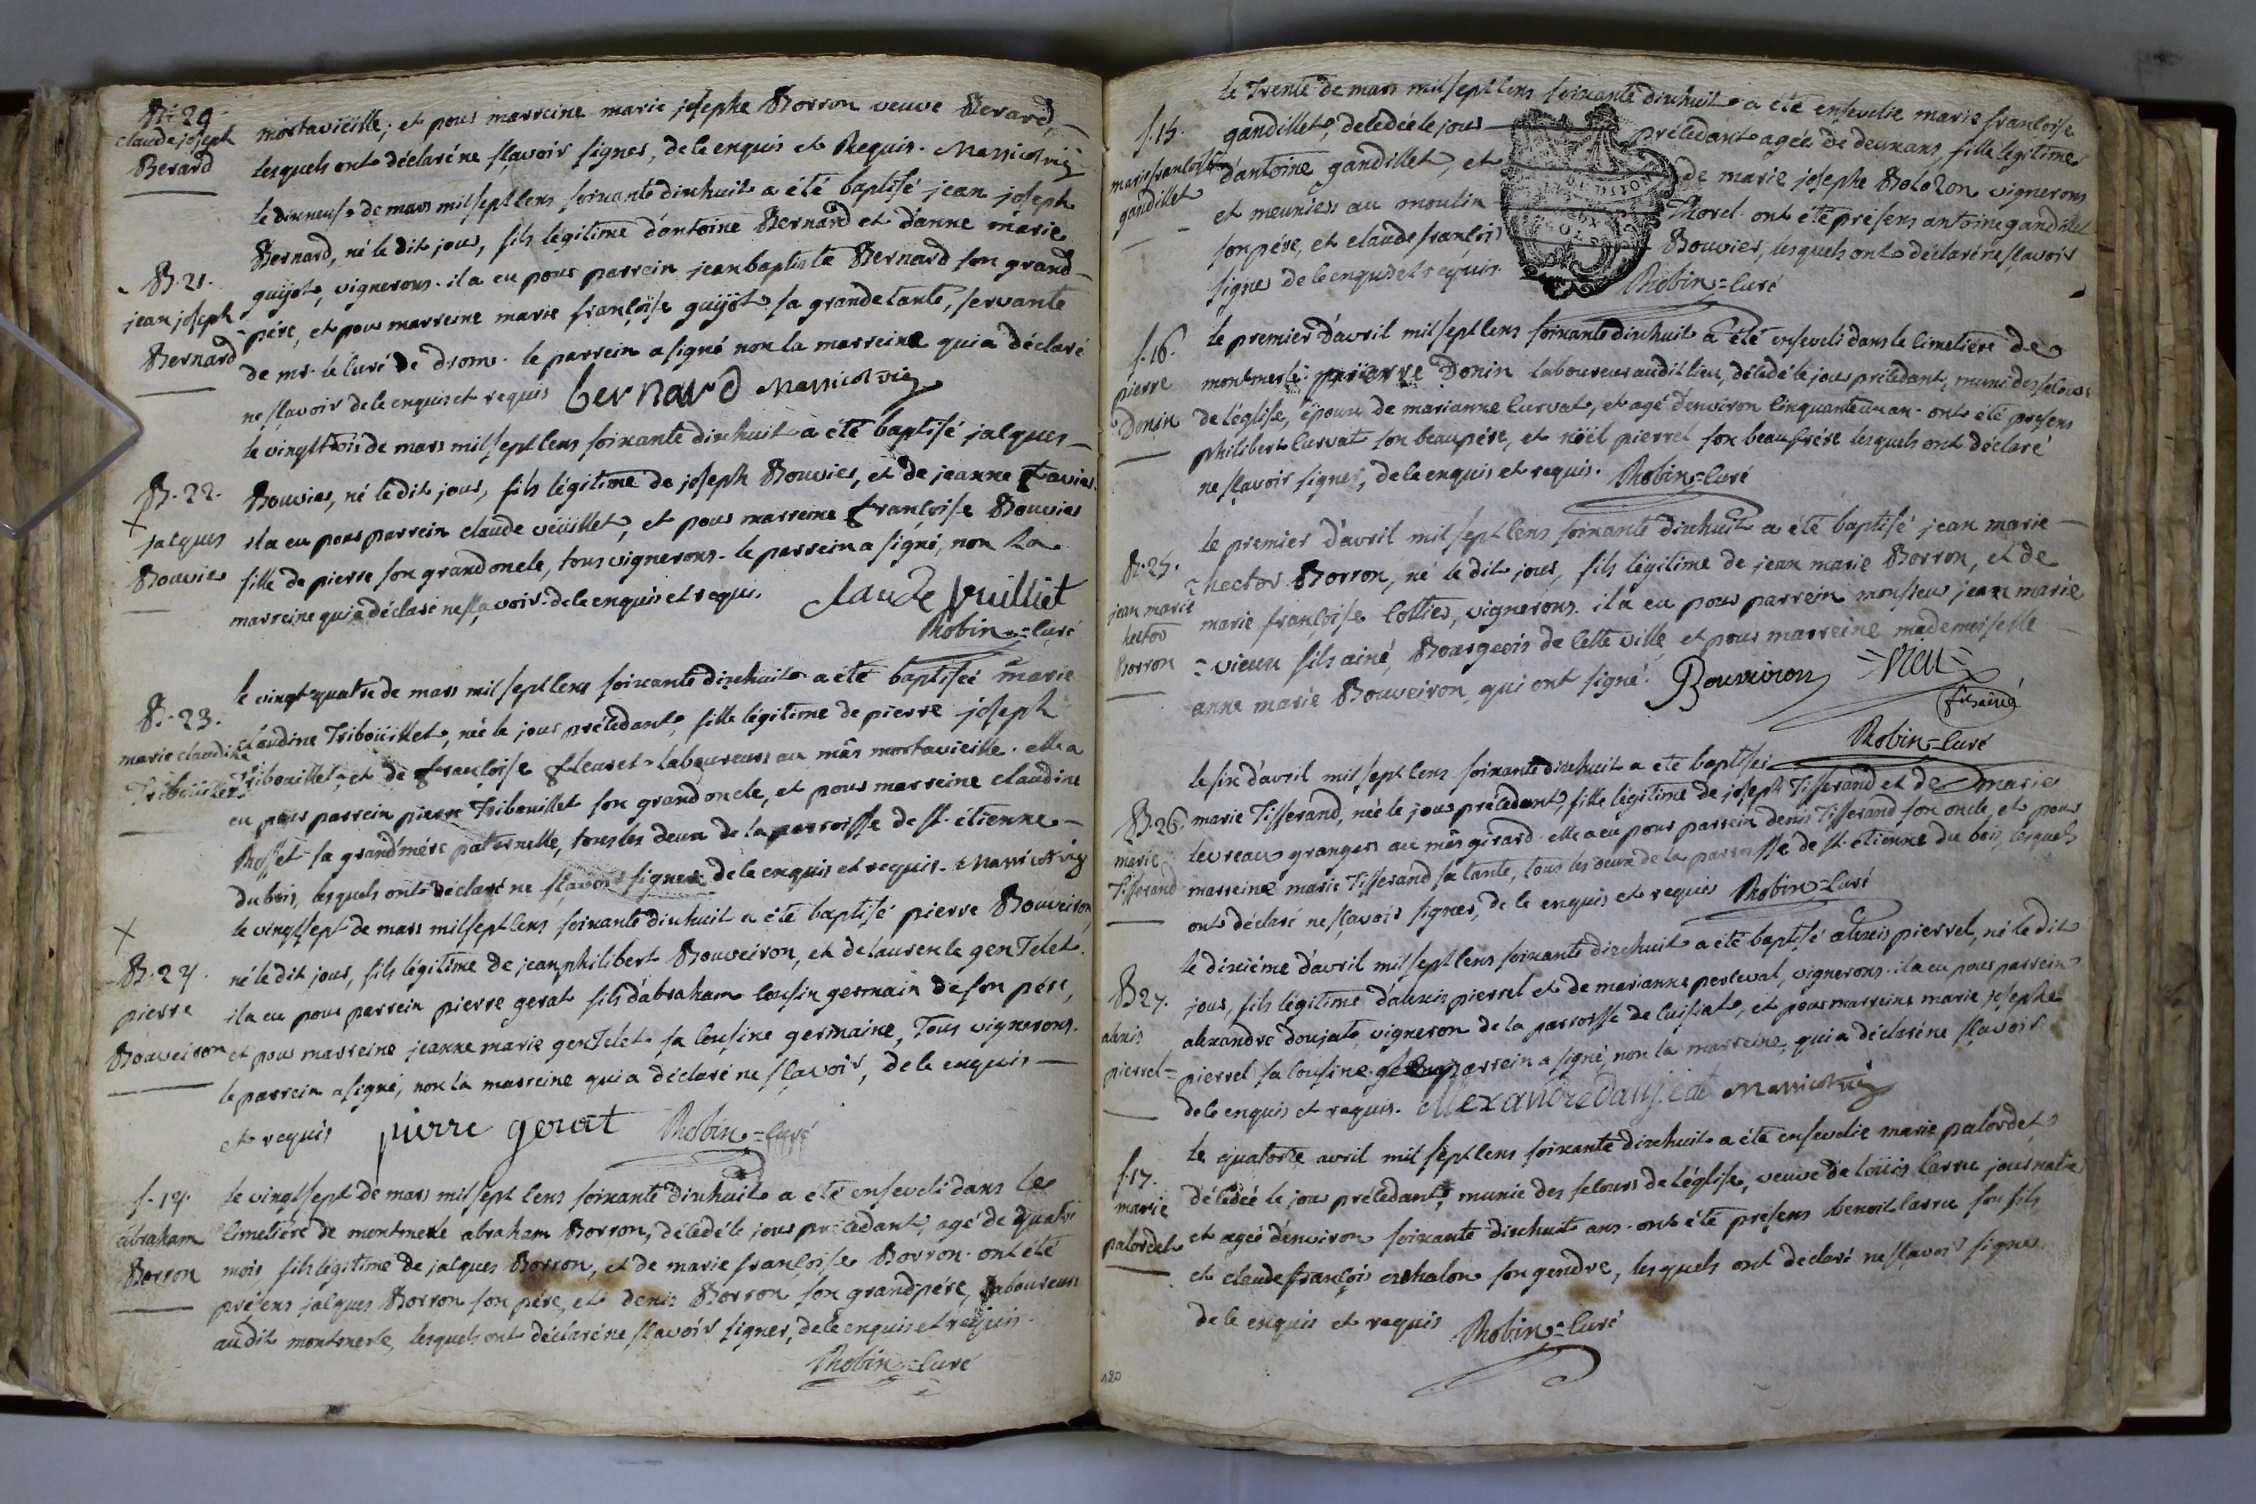 B. 20.
claude joseph
Berard
mortavieille; et pour marreine marie josephe Borron veuve Berard,
lesquels ont déclaré ne sçavoir signer, de ce enquis et Requis. Massicot vic
B. 21.
jean joseph
Bernard
le dixneuf de mars mil sept cens soixante dixhuit a été baptisé jean joseph
Bernard, né le dit jour, fils légitime d'antoine Bernard et d'anne marie
guijot, vignerons. il a eu pour parrein jean baptiste Bernard son grand
pére, et pour marreine marie françoise guijot sa grande tante, servante
de mr. le curé de drom. le parrein a signé non la marreine qui a déclaré
ne sçavoir de ce enquis et requis bernard Massicot vic
B. 22.
jacques
Bouvier
le vingt trois de mars mil sept cens soixante dixhuit a été baptisé jacques
Bouvier, né le dit jour, fils légitime de joseph Bouvier, et de jeanne favier.
il a eu pour parrein claude veüillet, et pour marreine françoise Bouvier
fille de pierre son grand oncle, tous vignerons. le parrein a signé, non la
marreine qui a déclaré ne sçavoir. de ce enquis et requis. Claude Vuilliet
Robin = curé
B. 23.
marie claudine
Tribouillet
le vingt quatre de mars mil sept cens soixante dixhuit a été baptisée marie
claudine Tribouillet, née le jour précédant, fille légitime de pierre joseph
Tribouillet, et de françoise fleuret laboureurs au mâs mortavieille. elle a
eu pour parrein pierre Tribouillet son grand oncle, et pour marreine claudine
Rosset sa grand'mére paternelle, tous les deux de la parroisse de st. étienne
du bois, lesquels ont déclaré ne sçavoir signer de ce enquis et requis. Massicot vic
B. 24.
pierre
Bouveiron
le vingt sept de mars mil sept cens soixante dixhuit a été baptisé pierre Bouveiron,
né le dit jour, fils légitime de jean philibert Bouveiron, et de laurence genTelet.
il a eu pour parrein pierre gerat fils d'abraham cousin germain de son pére,
et pour marreine jeanne marie genTelet sa cousine germaine, Tous vignerons.
le parrein a signé, non la marreine qui a déclaré ne sçavoir, de ce enquis
et requis pierre gerat Robin = curé
f. 14.
abraham
Borron
le vingt sept de mars mil sept cens soixante dixhuit a été enseveli dans le
cimetiére de montmerle abraham Borron, décédé le jour précédant, agé de quatre
mois fils légitime de jacques Borron, et de marie françoise Borron. ont été
présens jacques Borron son pére, et denis Borron son grandpére, laboureurs
au dit montmerle, lesquels ont déclaré ne sçavoir signer, de ce enquis et requis.
Robin = curé
f. 15.
marie françoise
gandillet
le Trente de mars mil sept cens soixante dixhuit a été ensevelie marie françoise
gandillet, décédée le jour précédant agée de deux ans, fille légitime
d'antoine gandillet, et de marie josephe Bolozon vignerons
et meuniers au moulin Thorel. ont été présens antoine gandillet
son pére, et claude françois Bouvier, lesquels ont déclaré ne sçavoir
signer de ce enquis et requis. Robin = curé
f. 16.
pierre
Donin
le premier d'avril mil sept cens soixante dixhuit a été enseveli dans le cimetiére de
montmerle pierre Donin laboureur audit lieu, décédé le jour précédant, muni des secours
de l'église, époux de marianne curvat, et agé d'environ cinquante un an. ont été présens
philibert curvat son beaupére, et nöël pierrel son beaufrére lesquels ont déclaré
ne sçavoir signer, de ce enquis et requis. Robin = curé
B. 25.
jean marie
hector
Borron
le premier d'avril mil sept cens soixante dixhuit a été baptisé jean marie
hector Borron, né le dit jour, fils légitime de jean marie Borron, et de
marie françoise collier, vignerons. il a eu pour parrein monsieur jean marie
vieux fils ainé, Bourgeois de cette ville et pour marreine mademoiselle
anne marie Bouveiron, qui ont signé. Bouveiron vieu
fils ainé
Robin = curé
B. 26.
marie
Tisserand
le six d'avril mil sept cens soixante dixhuit a été baptisée
marie Tisserand, née le jour précédant, fille légitime de joseph Tisserand et de marie
levreau grangers au mâs girard. elle a eu pour parrein denis Tisserand son oncle, et pour
marreine marie Tisserand sa tante, tous les deux de la parroisse de st. étienne du bois, lesquels
ont déclaré ne sçavoir signer, de ce enquis et requis Robin = curé
B. 27.
alexis
pierrel
le dixiéme d'avril mil sept cens soixante dixhuit a été baptisé alexis pierrel, né le dit
jour, fils légitime d'alexis pierrel et de marianne perceval, vignerons. il a eu pour parrein
alexandre doujat, vigneron de la parroisse de cuisiat, et pour marreine marie josephe
pierrel sa cousine. le parrein a signé, non la marreine, qui a déclaré ne sçavoir
de ce enquis et requis. Alexandre daujat Massicot vic
f. 17.
marie
palordet
le quatorze avril mil sept cens soixante dixhuit a été ensevelie marie palordet
décédée le jour précédant, munie des secours de l'église, veuve de loüis carru journalier
et agée d'environ soixante dixhuit ans. ont été présens benoit carru son fils
et claude françois echalon son gendre, lesquels ont déclaré ne sçavoir signer
de ce enquis et requis Robin = curé
120